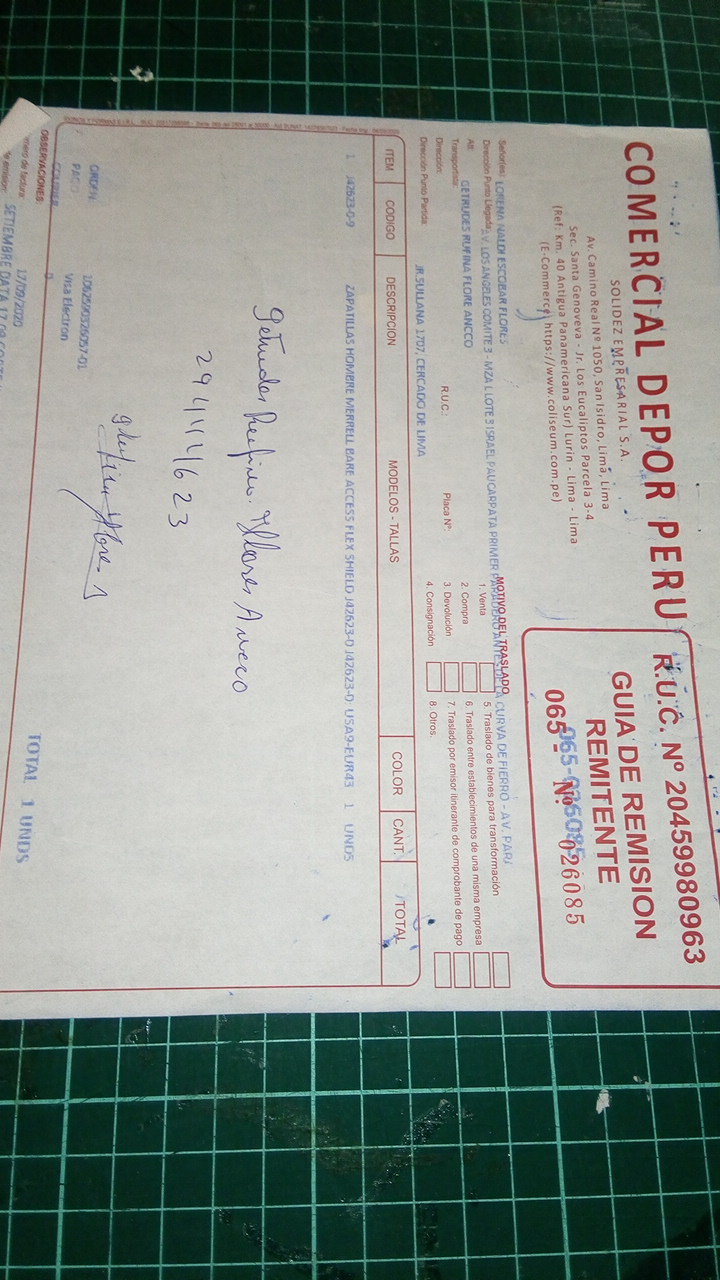 COMERCIAL DEPOR PERU
SOLIDEZ EMPRESARIAL S.A.
Av. Camino Real Nº 1050, San Isidro, Lima, Lima
Sec. Santa Genoveva - Jr. Los Eucaliptos Parcela 3-4
(Ref: Km. 40 Antigua Panamericana Sur) Lurin - Lima - Lima
(E-Commerce) https://www.coliseum.com.pe)
R.U.C. Nº 20459980963
GUIA DE REMISION
REMITENTE
065-026085
065- Nº 026085
Señor(es): LORENA NALDI ESCOBAR FLORES
Dirección Punto Llegada: AV. LOS ANGELES COMITE 3 - MZA L LOTE 3 ISRAEL PAUCARPATA PRIMER PARADERO ANTES DE LA CURVA DE FIERRO - AV. PARA
Att: GETRUDES RUFINA FLORE ANCCO
Transportista:
Dirección: R.U.C.: Placa Nº:
Dirección Punto Partida: JR.SULLANA 1707, CERCADO DE LIMA
MOTIVO DEL TRASLADO
1. Venta
2. Compra
3. Devolución
4. Consignación
5. Traslado de bienes para transformación
6. Traslado entre establecimientos de una misma empresa
7. Traslado por emisor itinerante de comprobante de pago
8. Otros.
ITEM CODIGO DESCRIPCION MODELOS - TALLAS COLOR CANT. TOTAL
1 J42623-0-9 ZAPATILLAS HOMBRE MERRELL BARE ACCESS FLEX SHIELD J42623-0 J42623-0: USA9-EUR43 1 UNDS
Getrudes Rufina Flores Ancco
29411623
ORDEN
PAGO Visa Electron
COURIER
TOTAL 1 UNDS
OBSERVACIONES:
17/09/2020